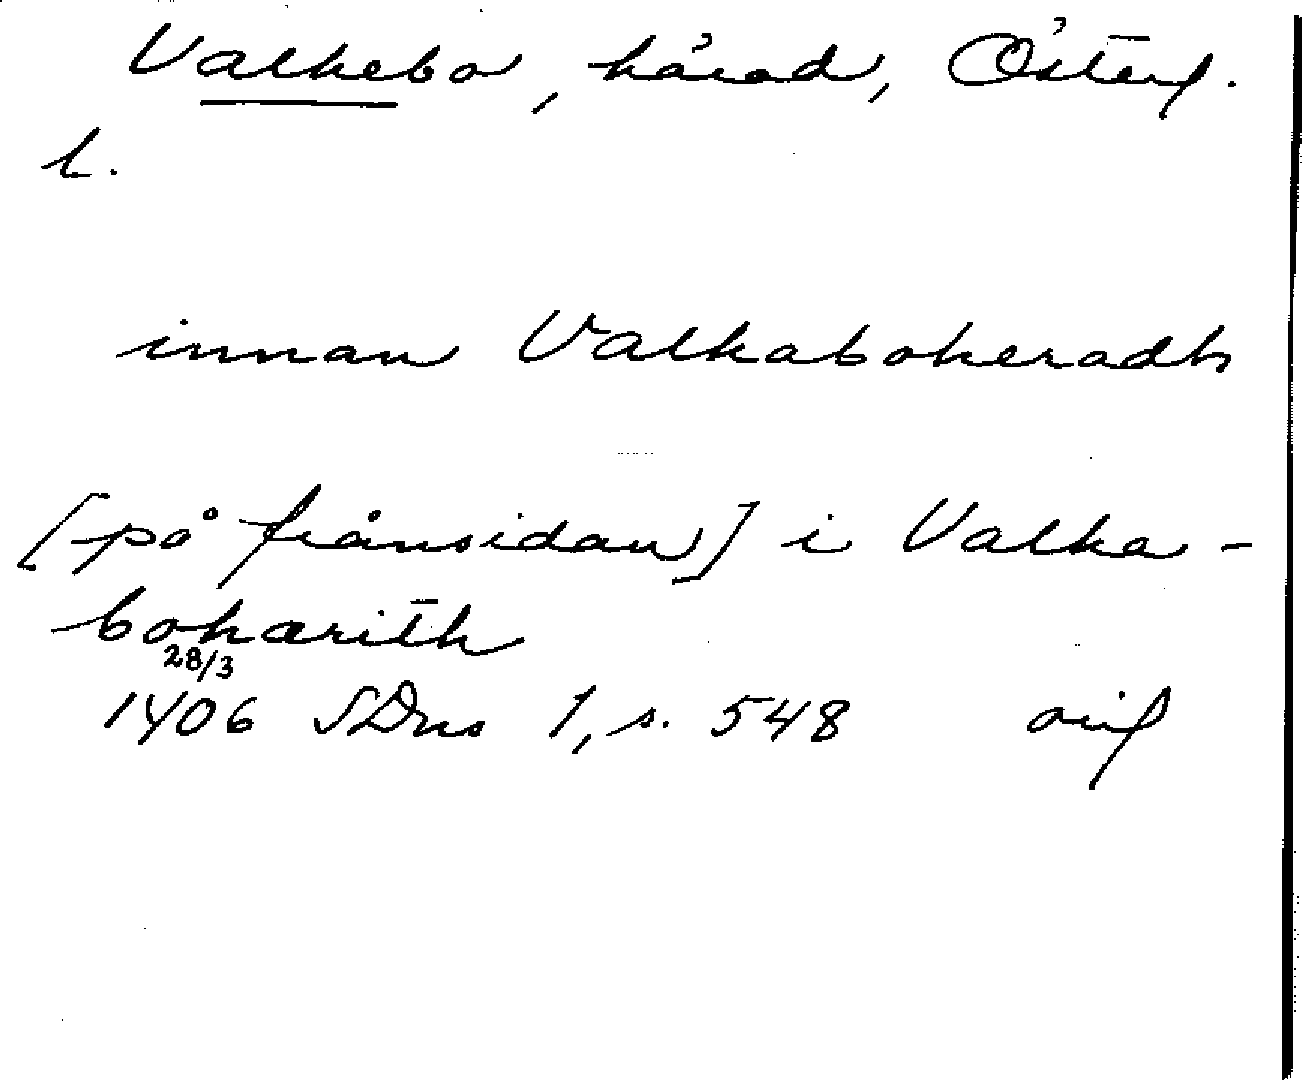 Valkebo, härad, Österg.
l.
innan Valkaboheradh
[på frånsidan] i Valka-
boharith
28/3
1406 SDns 1, s. 548 orig